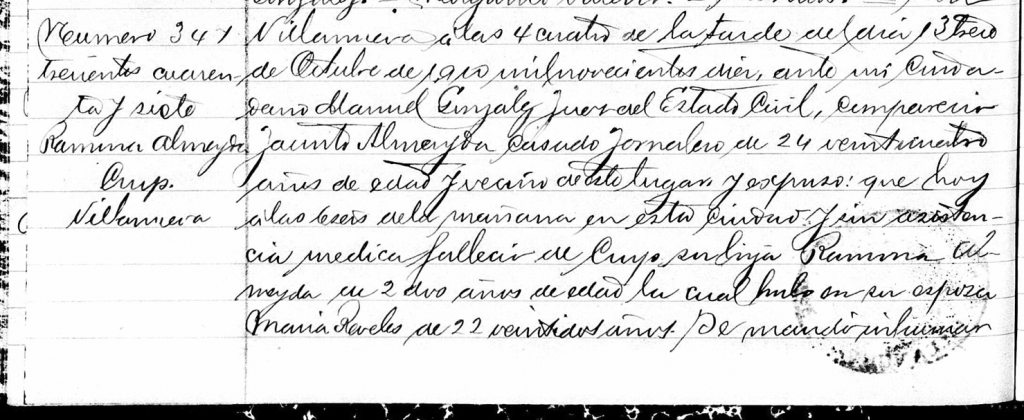 Numero 347
trecientos cuaren-
ta y siete
Ramina Almeyda
Crup.
Villanueva
Villanueva a las 4 cuatro de la tarde del dia 13 trece
de Octubre de 1910 mil novecientos diez, ante mi Ciuda-
dano Manuel Gonzalez Juez del Estado Civil, comparecio
Jacinto Almeyda casado Jornalero de 24 veinticuatro
años de edad y vecino de este lugar, y expuso: que hoy
a las 6 seis de la mañana en esta ciudad y sin asisten-
cia medica fallecio de Crup su hija Ramina Al-
meyda de 2 dos años de edad la cual hubo en su esposa
Maria Raveles de 22 veintidos años. Se mandó inhumar